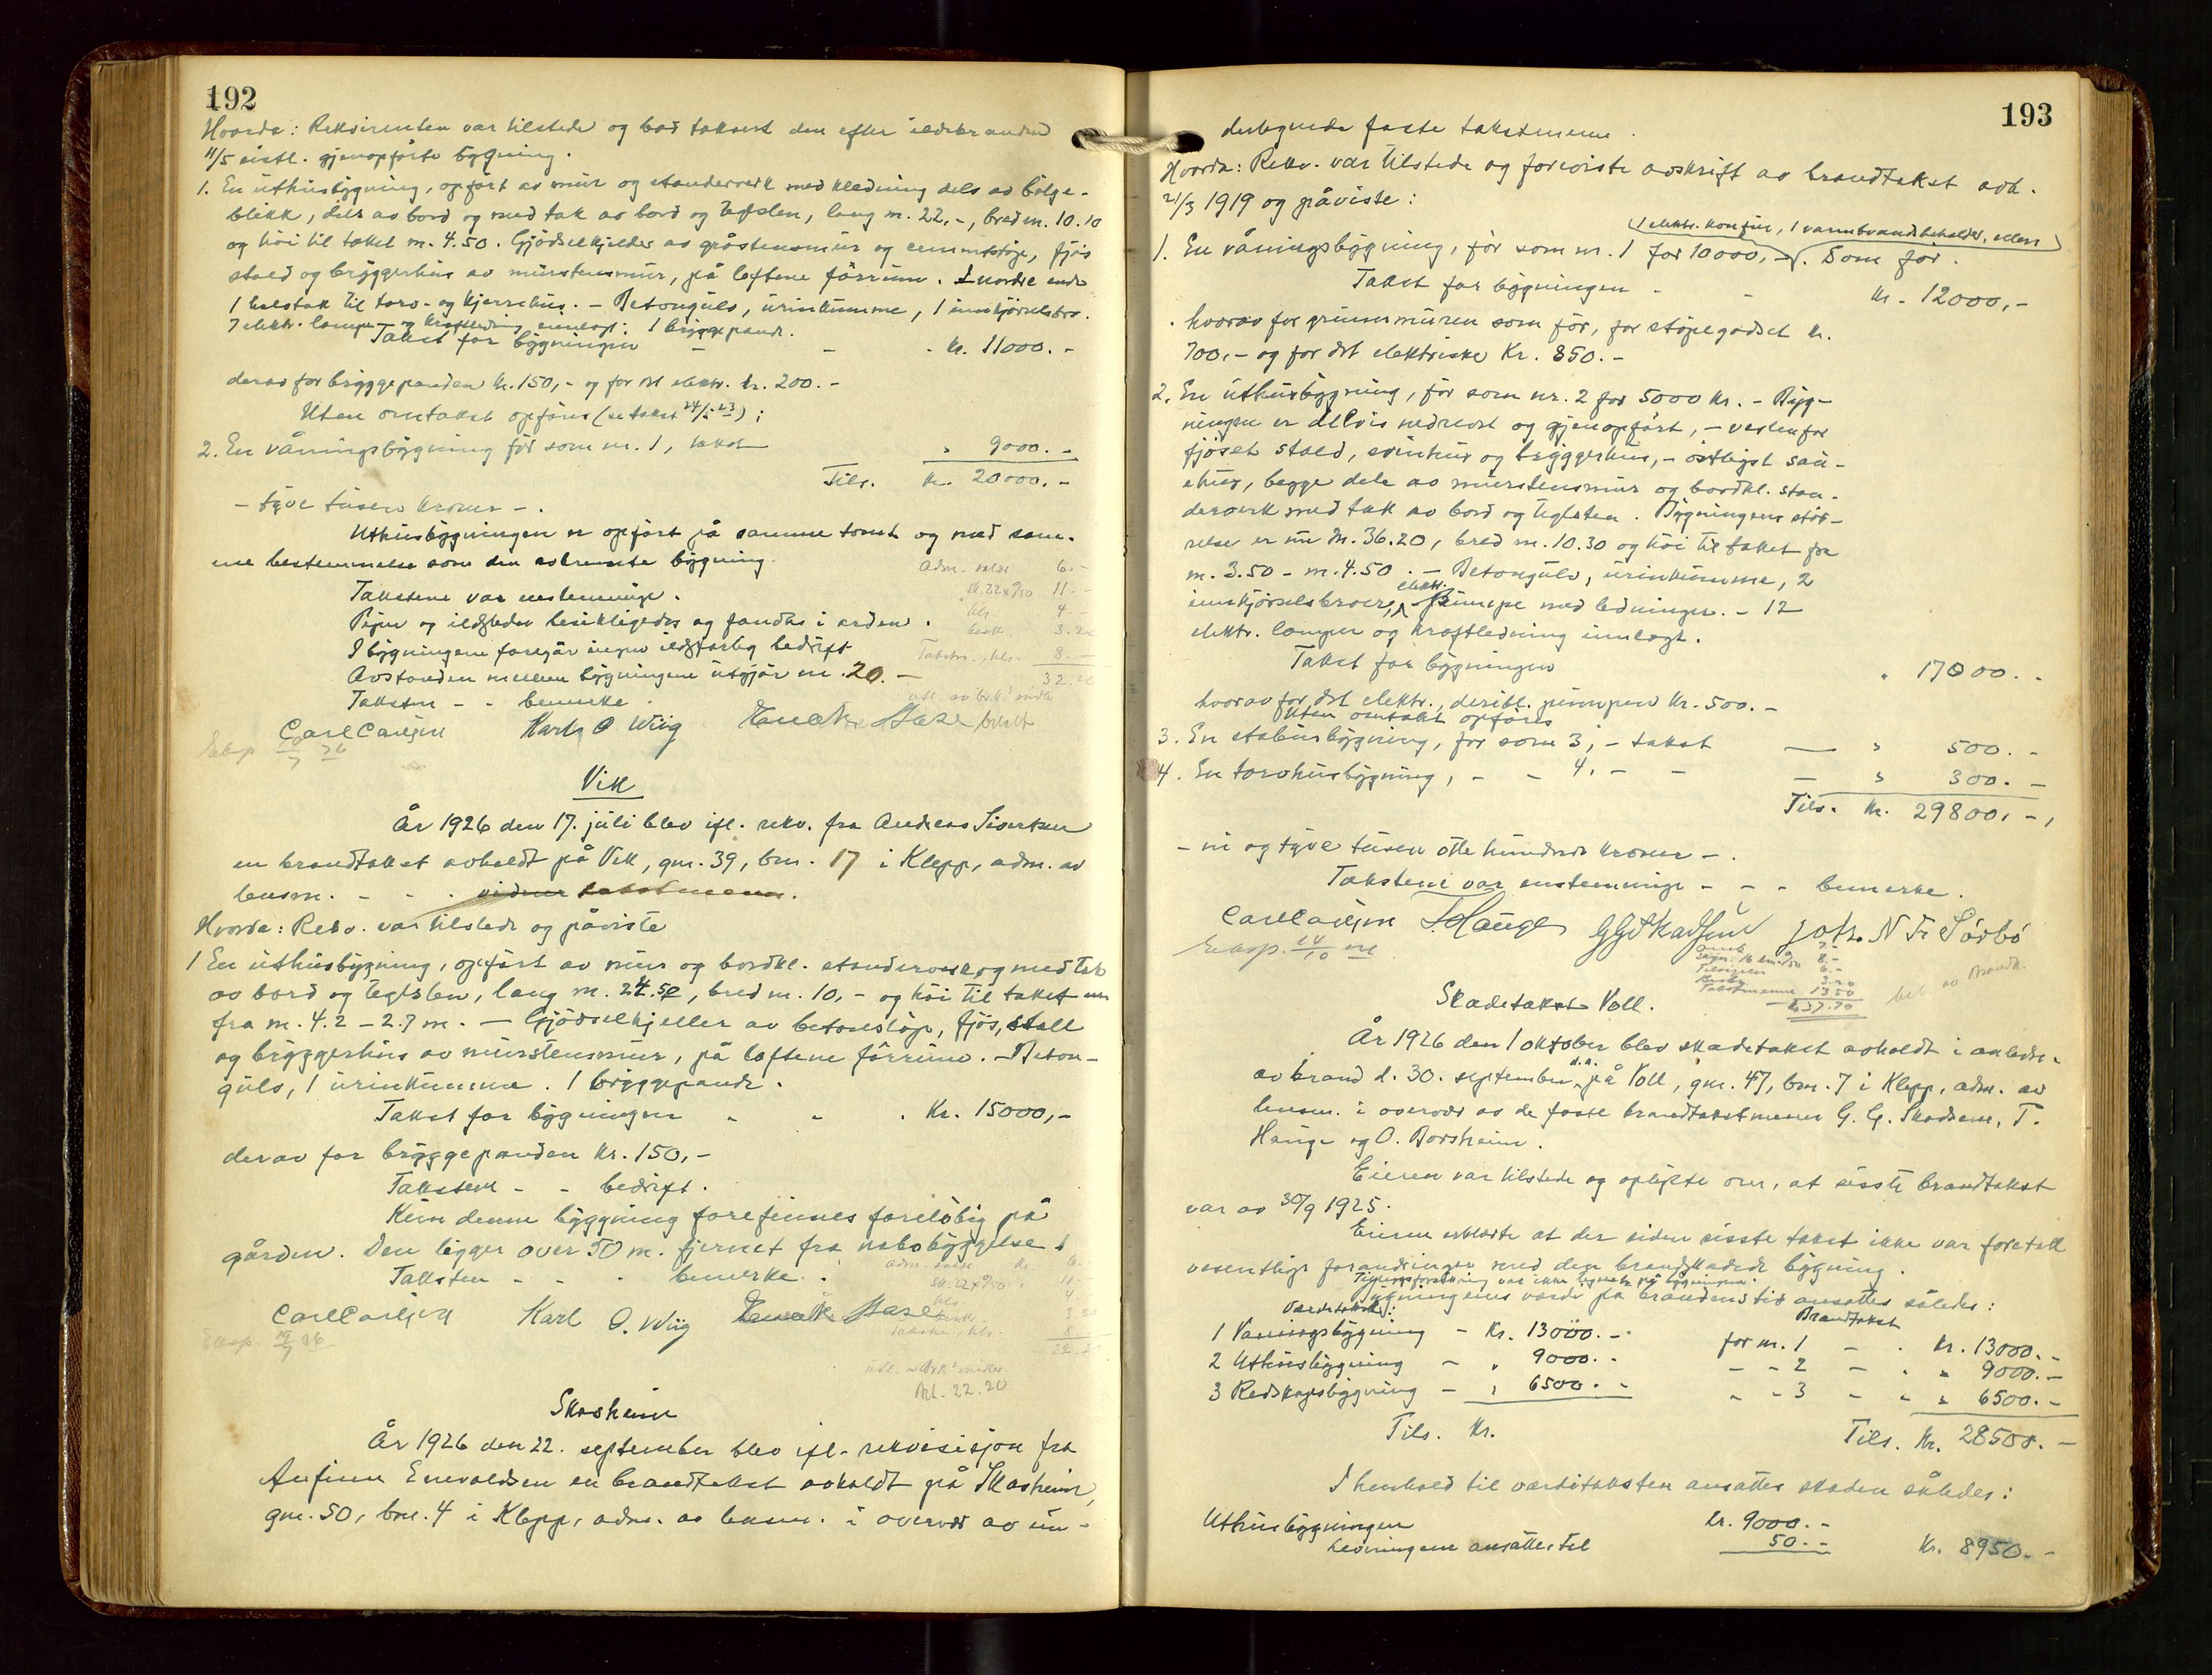 192
Hvorda: Rekvirenten var tilstede og bad taksert den efter ildebranden
11/5 sistl. gjenopførte bygning.
1. En uthusbygning, opført av mur og standerverk med kledning dels av bølge-
blikk, dels av bord og med tak av bord og teglsten, lang m. 22,-, bred m. 10.10
og høi til taket m. 4.50. Gjødselkjelder av gråstensmur og cementstøp, fjøs
stald og bryggerhus av murstensmur, på loftene fôrrum. I nordre ende
1 halvtak til torv- og kjerrehus. - Betongulv, urinkumme, 1 innkjørselsbro.
7 elektr. lamper og kraftledning innlagt; 1 bryggepande.
Takst for bygningen - - - kr. 11000.-
derav for bryggepanden kr. 150,- og for det elektr. kr. 200.-
Uten omtakst opføres (se takst 24/5 23):
2. En våningsbygning før som nr. 1, takst " 9000.-
Tils. kr. 20000.-
- tyve tusen kroner -.
Uthusbygningen er opført på samme tomt og med sam-
me bestemmelse som den avbrente bygning.
Takstene var enstemmige.
Piper og ildsteder besiktigedes og fandtes i orden.
I bygningene foregår ingen ildsfarlig bedrift
Avstanden mellem bygningene utgjør m. 20.-
Taksten - - bemerke.
Carl Carlsen Karl O. Wiig
Eksp. 19/7 26
adm. 6.-
sk. 22 x 9/50 11.-
kls. 4.-
3.20
Takstm., kls. 8.-
32.20
Vik
År 1926 den 17. juli blev ifl. rekv. fra Andreas Sivertsen
en brandtakst avholdt på Vik, gnr. 39, bnr. 17 i Klepp, adm. av
lensm. - - -
Hvorda: Rekv. var tilstede og påviste
1 En uthusbygning, opført av mur og bordkl. standerverk og med tak
av bord og teglsten, lang m. 24.50, bred m. 10,- og høi til taket
fra m. 4.2 - 2.7 m. - Gjødselkjeller av betonstøp, fjøs, stall
og bryggerhus av murstensmur, på loftene fôrrum. - Beton-
gulv, 1 urinkumme. 1 bryggepande.
Takst for bygningen - - - Kr. 15000,-
derav for bryggepanden kr. 150,-
Taksten - - bedrift.
Kun denne bygning forefinnes foreløbig på
gården. Den ligger over 50 m. fjernet fra nabobyggelse.
Taksten - - - bemerke.
Carl Carlsen Karl O. Wiig
Eksp. 19/7 26
Bl. 22.20
Skasheim
År 1926 den 22. september blev ifl. rekvisisjon fra
Anfinn Enevoldsen en brandtakst avholdt på Skasheim,
gnr. 50, bnr. 4 i Klepp, adm. av lensm. i overvær av un-
193
dertegnede faste takstmenn.
Hvorda: Rekv. var tilstede og foreviste avskrift av brandtakst avh.
21/3 1919 og påviste:
(1 elektr. komfur, 1 varmtvandsbeholder, ellers)
1. En våningsbygning, før som nr. 1 for 10000,-. Som før.
Takst for bygningen - - kr. 12000,-
hvorav for grunnmuren som før, for støpegodset kr.
700,- og for det elektriske Kr. 850.-
2. En uthusbygning, før som nr. 2 for 5000 kr. - Byg-
ningen er delvis nedrevet og gjenopført, - vestenfor
fjøset stald, svinhus og bryggerhus, - østligst sau-
ehus, begge dele av murstensmur og bordkl. stan-
derverk med tak av bord og teglsten. Bygningens stør-
relse er nu m. 36.20, bred m. 10.30 og høi til taket fra
m. 3.50 - m. 4.50. - Betongulv, urinkumme, 2
innkjørselsbroer, elektr. pumpe med ledninger. - 12
elektr. lamper og kraftledning innlagt.
Takst for bygningen " 17000.-
hvorav for det elektr., deribl. pumpen Kr. 500.-
Uten omtakst opføres
3. En stabursbygning, før som 3, - takst - " 500.-
4. En torvhusbygning, - - 4, - - - " 300.-
Tils. Kr. 29800,-,
- ni og tyve tusen otte hundrede kroner -.
Takstene var enstemmige - - - bemerke.
Carl Carlsen T. Hauge G G Skadsem Joh. N Fr Sørbø
Eksp. 14/10
8.-
6.-
3.20
Takstmenn 13.50
37.70
Skadetakst Voll.
År 1926 den 1 oktober blev skadetakst avholdt i anledn.
av brand d. 30. september d.a. på Voll, gnr. 47, bnr. 7 i Klepp, adm. av
lensm. i overvær av de faste brandtakstmenn G. G. Skadsem, T.
Hauge og O. Borsheim.
Eieren var tilstede og oplyste om, at siste brandtakst
var av 30/9 1925.
Eieren erklærte at der siden siste takst ikke var foretatt
vesentlige forandringer med den brandskadede bygning.
Tilleggsforsikring var ikke tegnet på bygningene.
Bygningenes værdi på brandens tid ansattes således:
Værditakst: Brandtakst
1 Vaaningsbygning - Kr. 13000.- for nr. 1 - - Kr. 13000.-
2 Uthusbygning - " 9000.- - - 2 - " " 9000.-
3 Redskapsbygning - " 6500.- - - 3 - " " 6500.-
Tils. Kr. Tils. Kr. 28500.-
I henhold til værditaksten ansattes skaden således:
Uthusbygningen kr. 9000.-
Levningene ansattes til 50.- Kr. 8950.-